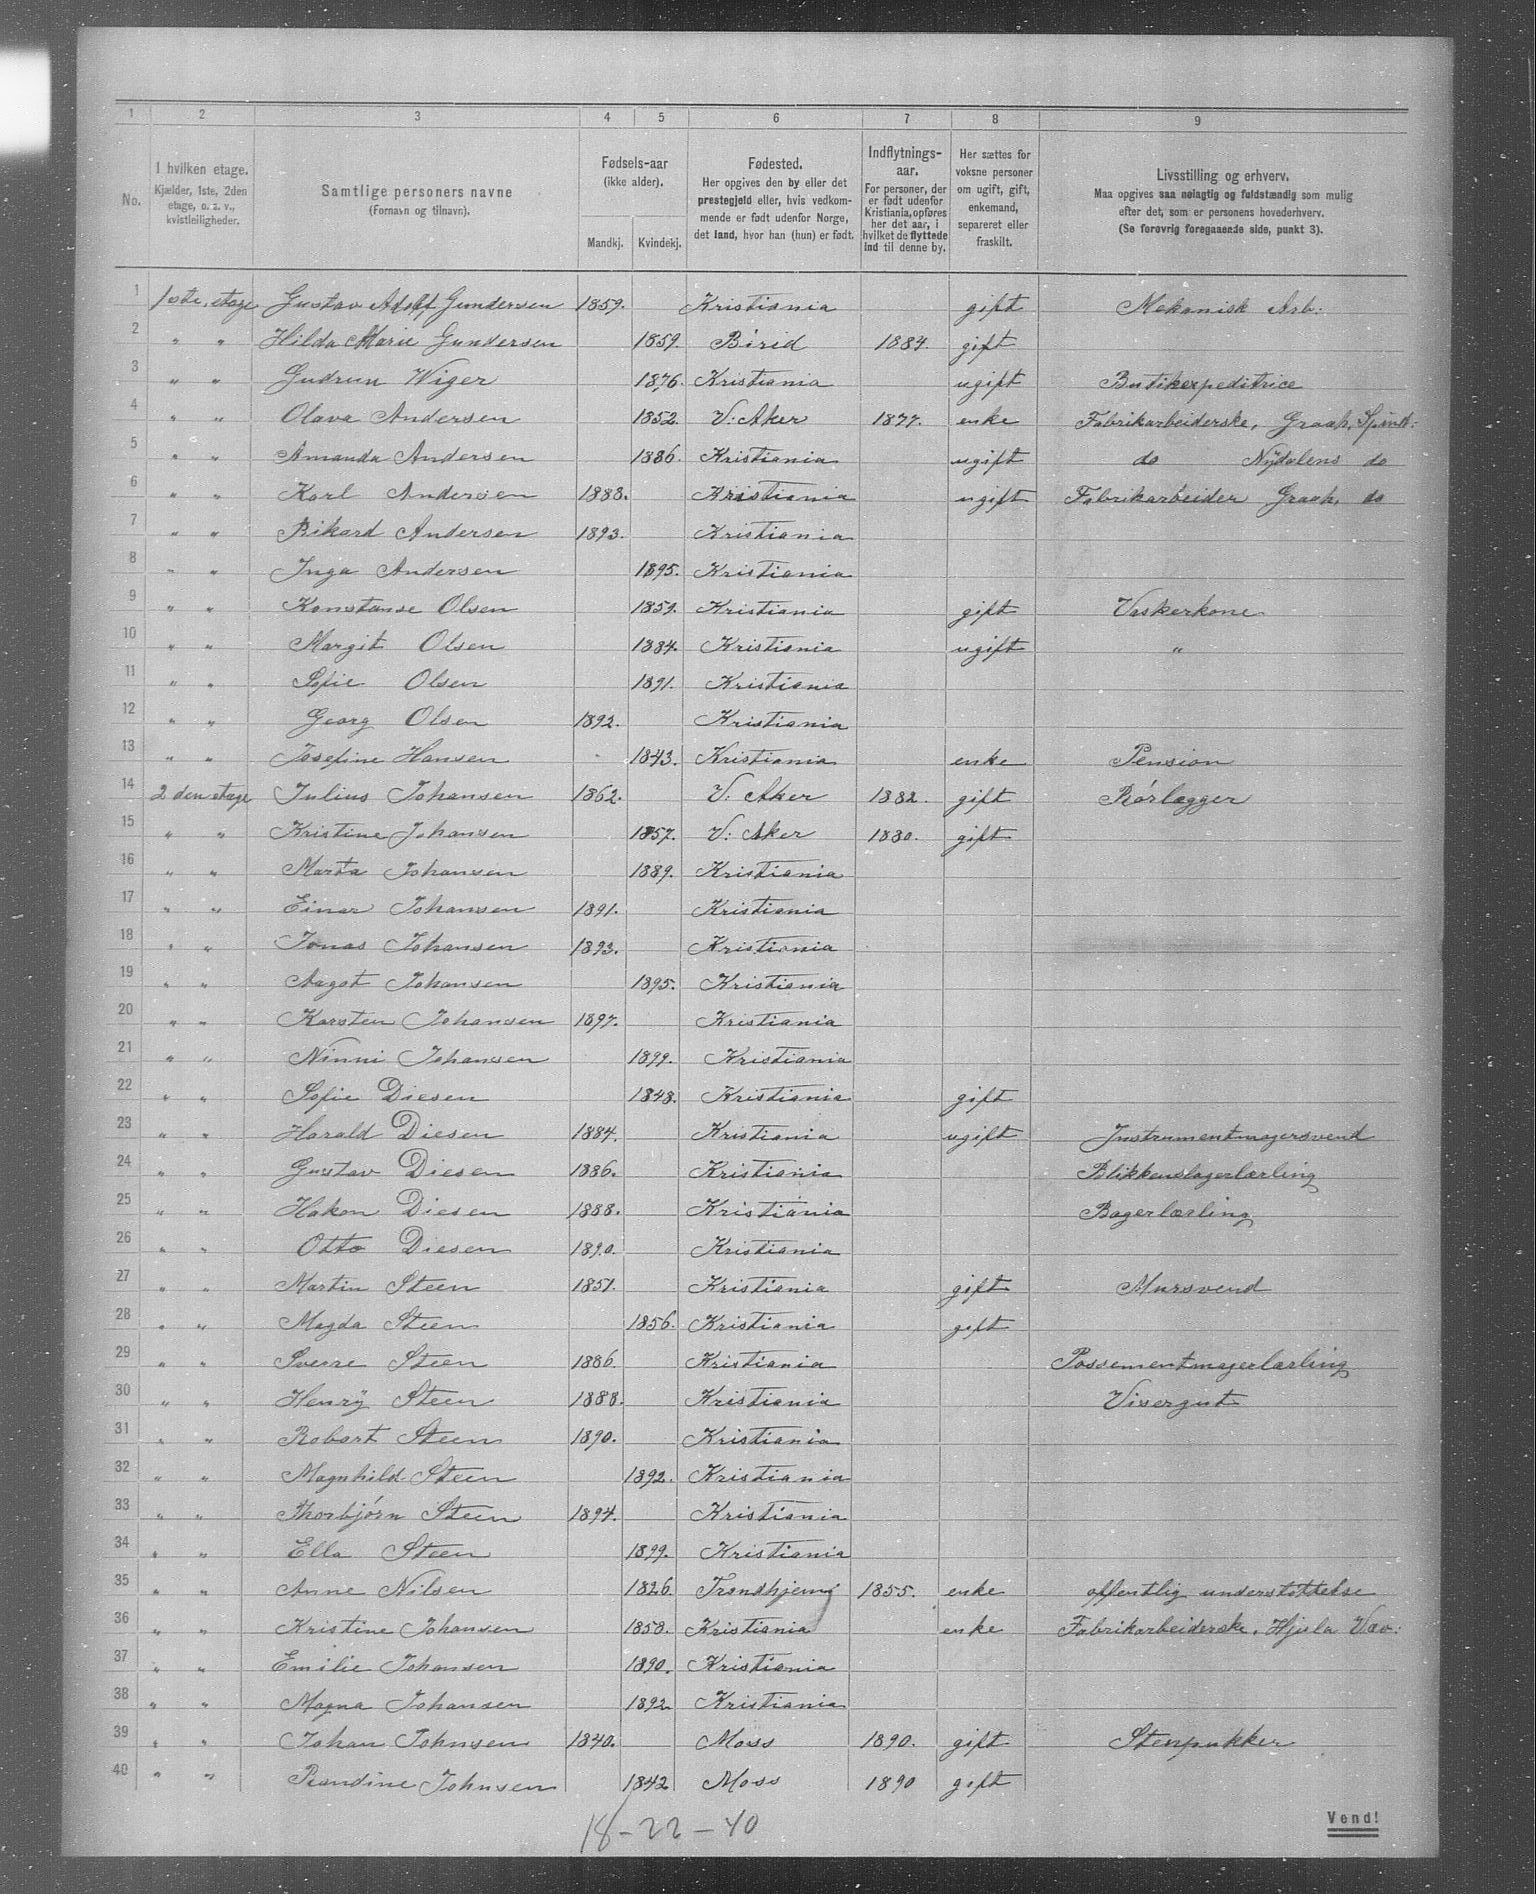 1 2 3 4 5 6 7 8 9
No. I hvilken etage. Kjælder, 1ste, 2den etage, o. s. v., kvistleiligheder. Samtlige personers navne (Fornavn og tilnavn). Fødsels-aar (ikke alder). Mandkj. Kvindekj. Fødested. Her opgives den by eller det prestegjeld eller, hvis vedkommende er født udenfor Norge, det land, hvor han (hun) er født. Indflytnings-aar. For personer, der er født udenfor Kristiania, opføres her det aar, i hvilket de flyttede ind til denne by. Her sættes for voksne personer om ugift, gift, enkemand, separeret eller fraskilt. Livsstilling og erhverv. Maa opgives saa nøiagtig og fuldstændig som mulig efter det, som er personens hovederhverv. (Se forøvrig foregaaende side, punkt 3).
1 1ste etage Gustav Adolf Gundersen 1859. Kristiania gift Mekanisk Arb:
2 " " Hilda Marie Gundersen 1859. Birid 1884. gift
3 " " Gudrun Wiger 1876. Kristiania ugift Butikexpeditrice
4 " " Olava Andersen 1852. V: Aker 1877. enke Fabrikarbeiderske, Graah. Spind:
5 " " Amanda Andersen 1886. Kristiania ugift do Nÿdalens do
6 " " Karl Andersen 1888. Kristiania ugift Fabrikarbeider Graah. do
7 " " Rikard Andersen 1893. Kristiania
8 " " Inga Andersen 1895. Kristiania
9 " " Konstanse Olsen 1859. Kristiania gift Vaskerkone
10 " " Margit Olsen 1884. Kristiania ugift "
11 " " Sofie Olsen 1891. Kristiania
12 " " Georg Olsen 1892. Kristiania
13 " " Josefine Hansen 1843. Kristiania enke Pension
14 2 den etage Julius Johansen 1862. V: Aker 1882. gift Rörlægger
15 " " Kristine Johansen 1857. V: Aker 1880. gift
16 " " Marta Johansen 1889. Kristiania
17 " " Einar Johansen 1891. Kristiania
18 " " Jonas Johansen 1893. Kristiania
19 " " Aagot Johansen 1895. Kristiania
20 " " Karsten Johansen 1897. Kristiania
21 " " Ninni Johansen 1899. Kristiania
22 " " Sofie Diesen 1848. Kristiania gift
23 " " Harald Diesen 1884. Kristiania ugift Instrumentmagersvend
24 " " Gustav Diesen 1886. Kristiania Blikkenslagerlærling
25 " " Hakon Diesen 1888. Kristiania Bagerlærling
26 " " Otto Diesen 1890. Kristiania
27 " " Martin Steen 1851. Kristiania gift Mursvend
28 " " Magda Steen 1856. Kristiania gift
29 " " Sverre Steen 1886. Kristiania Possementmagerlærling
30 " " Henrÿ Steen 1888. Kristiania Visergut
31 " " Robert Steen 1890. Kristiania
32 " " Magnhild Steen 1892. Kristiania
33 " " Thorbjörn Steen 1894. Kristiania
34 " " Ella Steen 1899. Kristiania
35 " " Anne Nilsen 1826. Trondhjem 1855. enke offentlig understöttelse
36 " " Kristine Johansen 1858. Kristiania enke Fabrikarbeiderske, Hjula Væv:
37 " " Emilie Johansen 1890. Kristiania
38 " " Magna Johansen 1892 Kristiania
39 " " Johan Johnsen 1840. Moss 1890. gift Stenpukker
40 " " Randine Johnsen 1842 Moss 1890 gift
18-22-40
Vend!